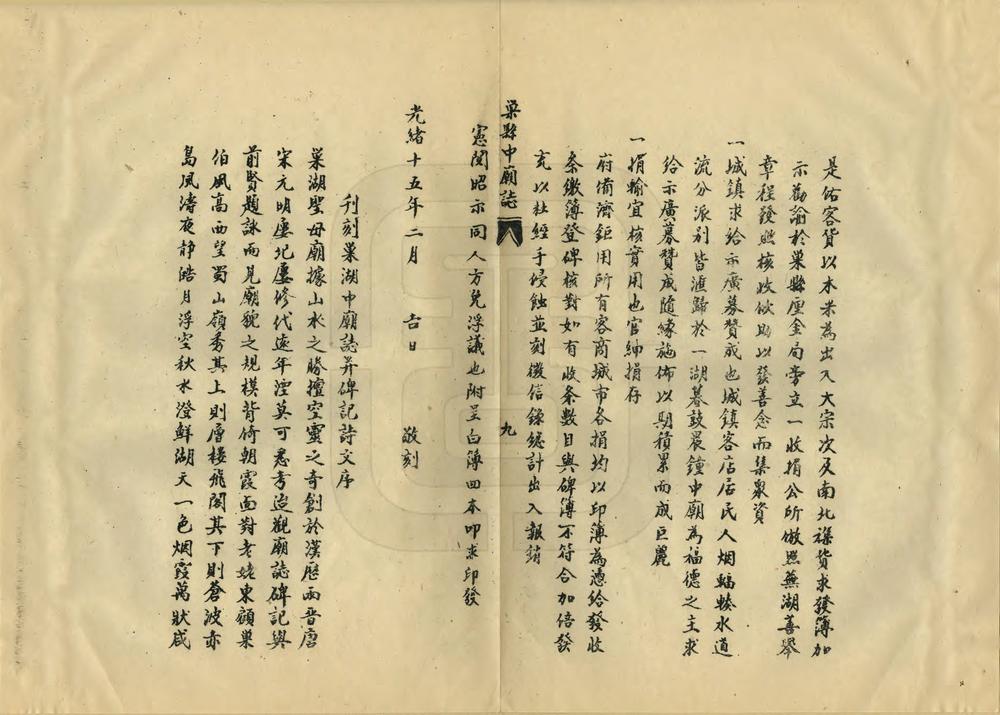 是佑客貨以本米為出入大宗次及南北雜貨求發簿加
示勸諭於巢縣厘金局旁立一收捐公所倣照蕪湖善舉
章程發照核收俶助以發善念而集衆資
一城鎮求給示廣募贊成也城鎮客店居民人烟輻輳水道
流分派別皆滙歸於一湖暮鼓晨鐘中廟為福德之主求
給示廣募贊成隨緣施佈以期積累而成巨麗
一捐輸宜核實用也官紳捐存
府備濟鉅用所有客商城市各捐均以印簿為憑給發收
条繳簿登碑核對如有收条數目與碑簿不符合加倍發
充以杜經手侵蝕並刻徵信錄總計出入報銷
巢縣中廟誌
九
憲閱昭示同人方免浮議也附呈白簿四本叩求印發
光緒十五年二月 吉日 敬刻
刊刻巢湖中廟誌并碑記詩文序
巢湖聖母廟據山水之勝擅空靈之奇創於漢歷兩晉唐
宋元明屢圮屢修代遠年湮莫可悉考迨觀廟誌碑記與
前賢題詠而見廟貌之規模背倚朝霞面對老姥東顧巢
伯風高西望蜀山嶺秀其上則層樓飛閣其下則蒼波赤
島風濤夜静皓月浮空秋水澄鮮湖天一色烟霞萬狀咸